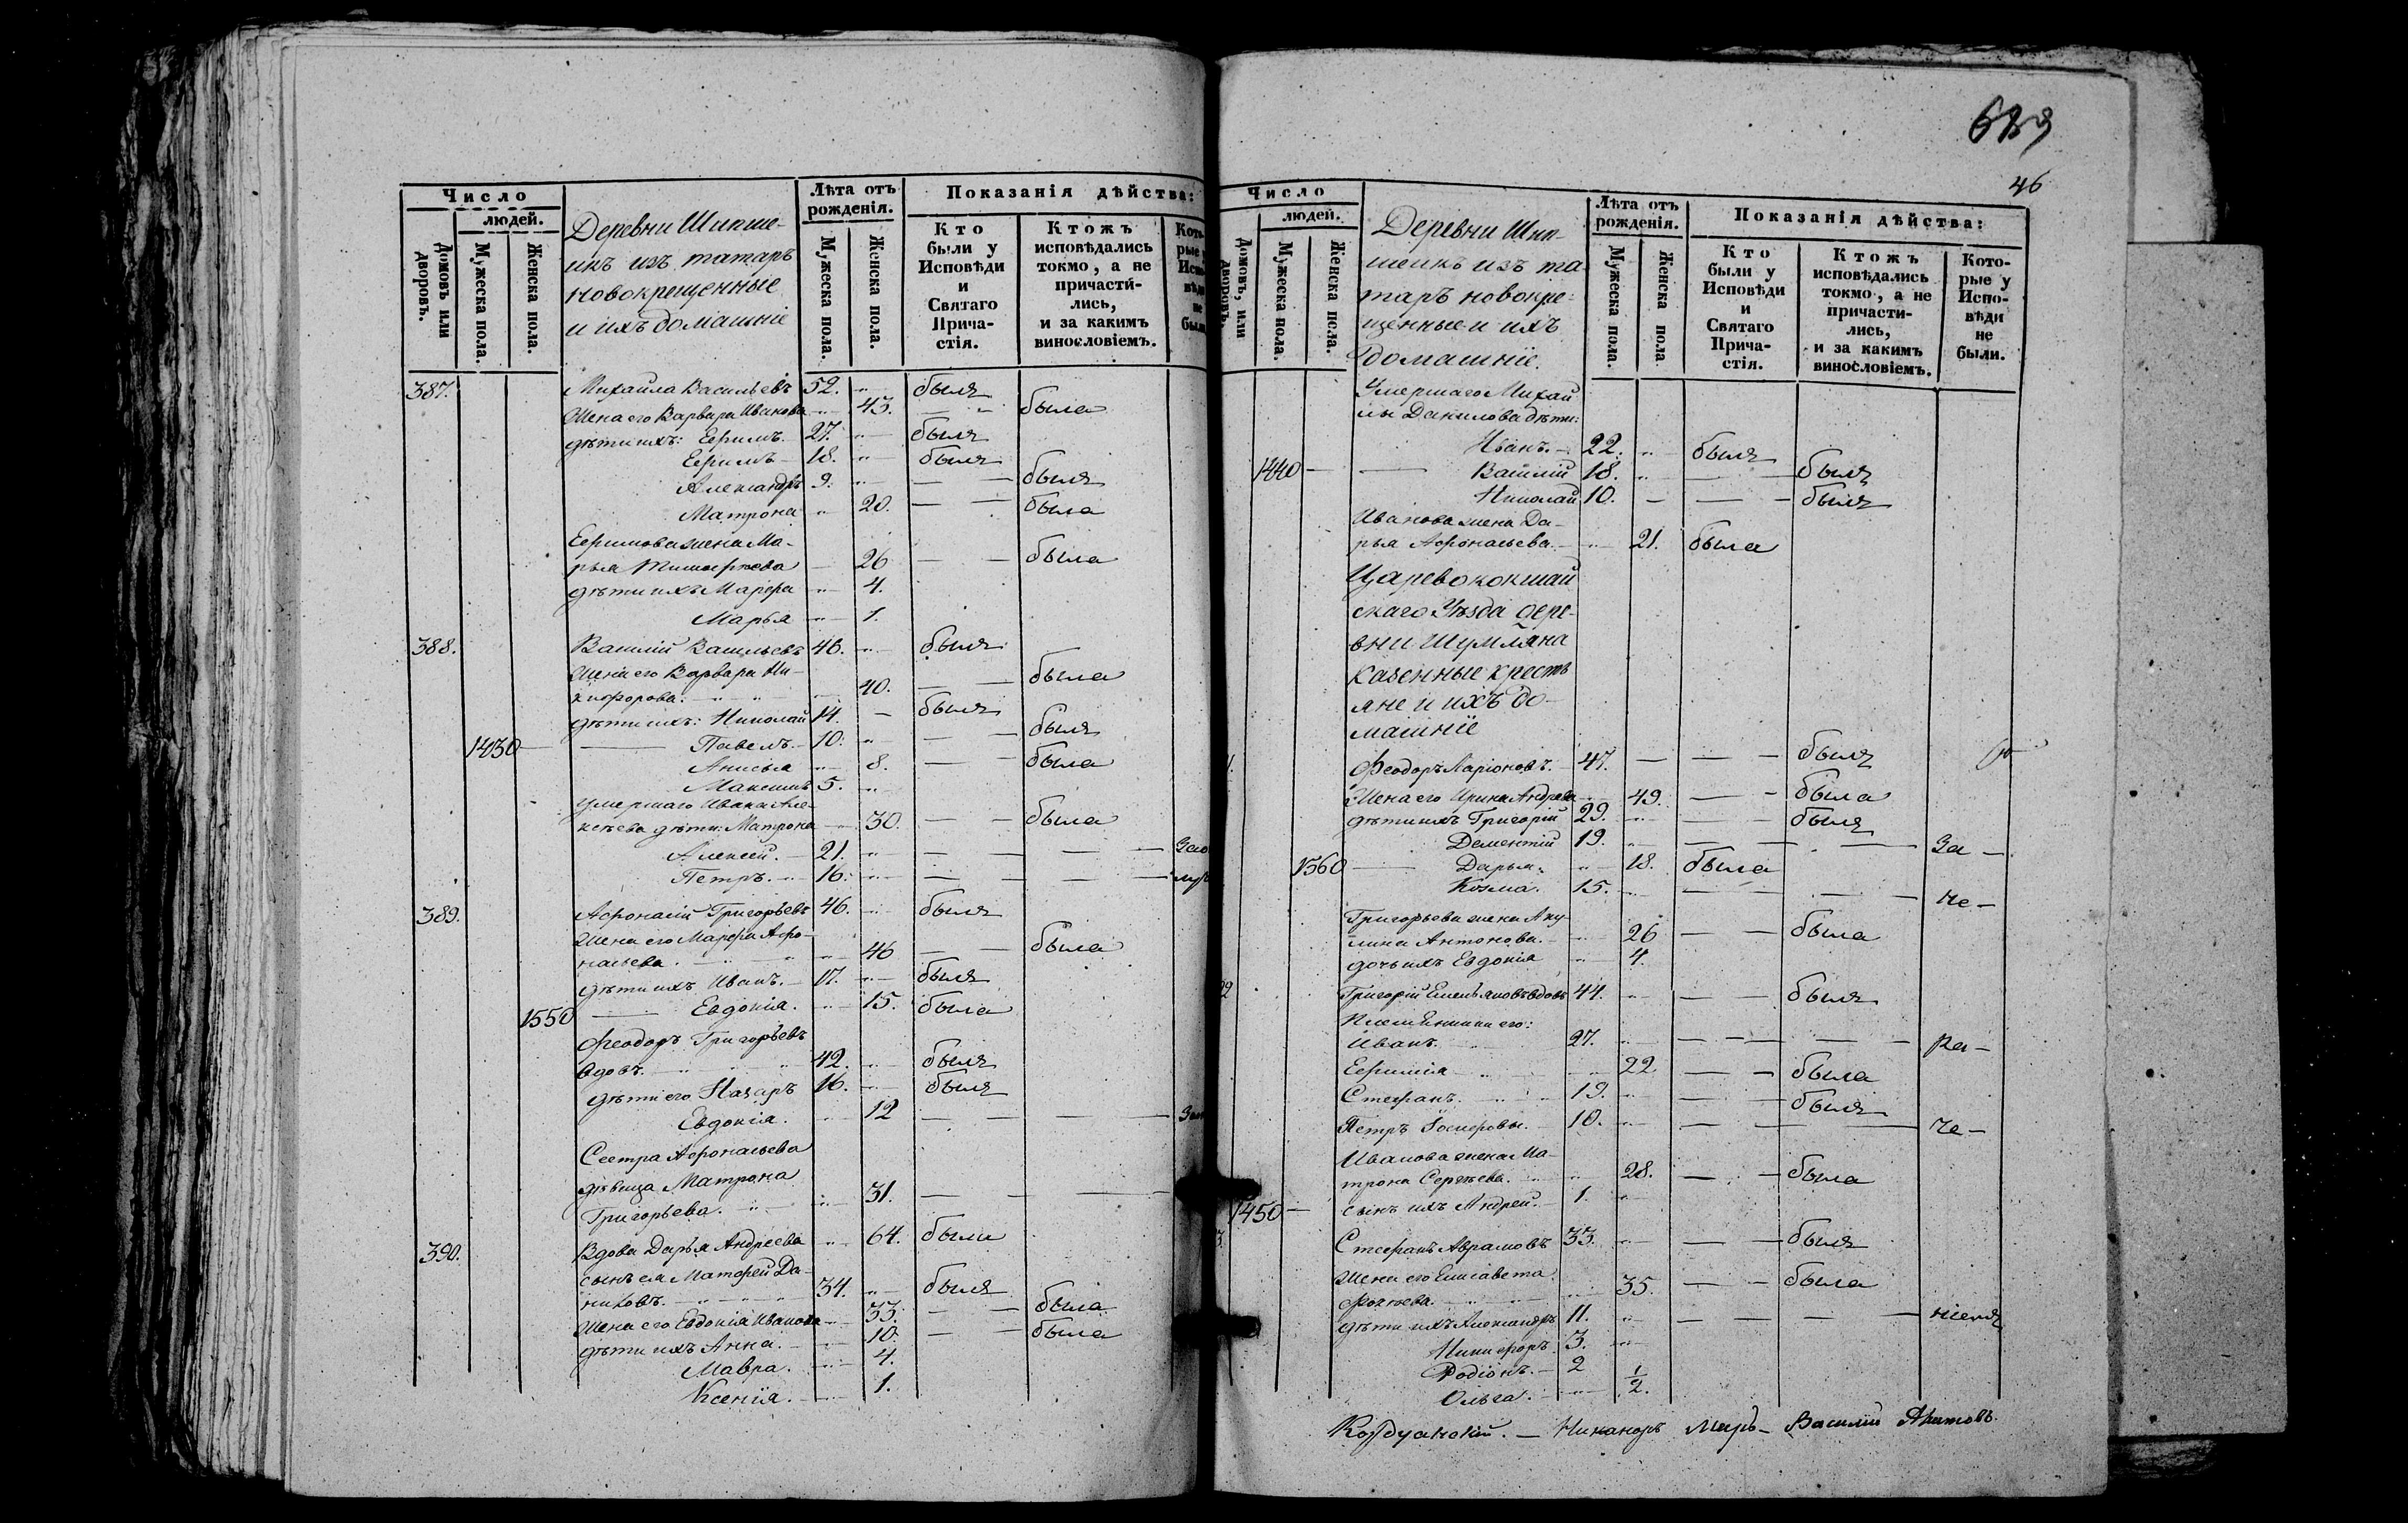 Число
людей.
Домовъ или дворовъ.
Мужеска пола.
Женска пола.
Деревни Шипше-
икъ изъ татаръ
новокрещенные
и ихъ домашніе
Лѣта отъ рожденія.
Мужеска пола.
Женска пола.
Показанія дѣйства:
Кто были у Исповѣди и Святаго Прича-стія.
Ктожъ исповѣдались токмо, а не причасти-лись, и за какимъ винословіемъ.
387. Михайла Васильевъ 52. былъ
Жена его Варвара Иванова 43. была
дѣти ихъ: Ефимъ. 27. былъ
Ефимъ 18. былъ
Александръ 9. былъ
Матрона 20. была
Ефимова жена Ма-
рья Тимофеева 26 была
дѣти ихъ Марфа 4.
Марья 1.
388. Василій Васильевъ 46. былъ
Жена его Варвара Ни-
кифорова. 40. была
дѣти ихъ: Николай 14. былъ
1430 Павелъ. 10. былъ
Анисья 8. была
Максимъ 5.
Умершаго Ивана Але-
ксѣева дѣти: Матрона 30. была
Алексей. 21.
Петръ. 16.
389. Афонасій Григорьевъ 46. былъ
Жена его Марфа Афо-
насьева. 46 была
дѣти ихъ Иванъ. 17. былъ
1550 Евдокія. 15. была
Феодоръ Григорьевъ
вдовъ. 42. былъ
дѣти его Назаръ 16. былъ
Евдокія. 12
Сестра Афонасьева
дѣвица Матрона
Григорьева. 31.
390. Вдова Дарья Андреева 64. были
сынъ ея Матфей Да-
ниловъ. 34. былъ
Жена его Евдокія Иванова 33. была
дѣти ихъ Анна. 10. была
Мавра. 4.
Ксенія. 1.
639
46
Число
людей.
Домовъ, или дворовъ.
Мужеска пола.
Женска пола.
Деревни Шип-
шеикъ изъ та-
таръ новокре-
щенные и ихъ
домашніе.
Лѣта отъ рожденія.
Мужеска пола.
Женска пола
Показанія дѣйства:
Кто были у Исповѣди и Святаго Прича-стія.
Ктожъ исповѣдались токмо, а не причасти-лись, и за какимъ винословіемъ.
Кото-рые у Испо-вѣди не были.
Умершаго Михай
лы Данилова дѣти:
Иванъ. 22. былъ
1440 Василій 18. былъ
Николай 10. былъ
Иванова жена Да-
рья Афонасьева. 21. была
Царевококшай
скаго Уѣзда дере-
вни Шумляна
казенные кресть
яне и ихъ до-
машніе
Феодоръ Ларіоновъ. 47. былъ
Жена его Ирина Андреева 49. была
дѣти ихъ Григорій 29. былъ
Дементій 19. За
1560 Дарья. 18. была
Козма. 15. не
Григорьева жена Аку-
лина Антонова. 26 была
дочь ихъ Евдокія 4.
Григорій Емельяновъ вдовъ 44. былъ
Племянники его:
Иванъ. 27. ра
Ефимія 22 была
Стефанъ. 19. былъ
Петръ Іосифовы. 10. че
Иванова жена Ма-
трона Сергѣева. 28. была
1450 сынъ ихъ Андрей. 1.
Стефанъ Аврамовъ 33. былъ
Жена его Елисавета
Фокѣева. 35. была
дѣти ихъ Александръ 11. ніемъ
Никифоръ 3.
Родіонъ. 2
Ольга. 1/2.
Никаноръ Василій